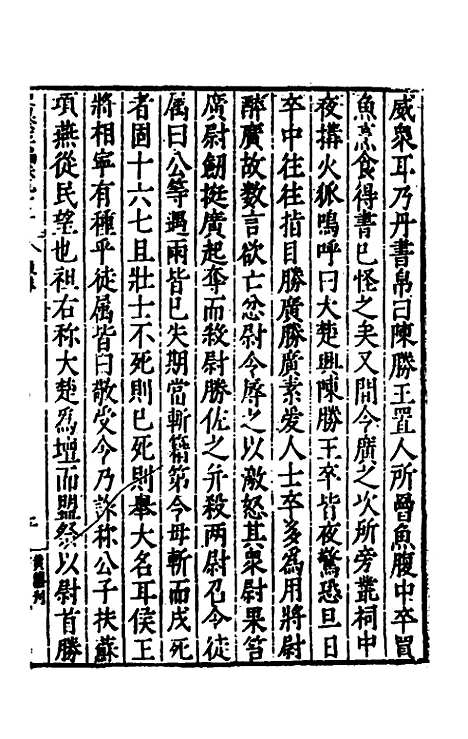 威衆耳乃丹書帛曰陳勝王置人所罾魚腹中卒買
魚烹食得書已怪之矣又間令廣之次所旁叢祠中
夜搆火狐鳴呼曰大楚興陳勝王卒皆夜驚恐旦日
卒中往往指目勝廣勝廣素爱人士卒多為用將尉
醉廣故數言欲亡忿尉令辱之以激怒其衆尉果笞
廣尉劒挺廣起奪而殺尉勝佐之并殺两尉召令徒
属曰公等遇雨皆已失期當斬藉第令毋斬而戍死
者固十六七且壯士不死則已死則舉大名耳侯王
將相寧有種乎徒属皆曰敬受令乃詐称公子扶蘇
項燕從民望也袒右称大楚為壇而盟祭以尉首勝